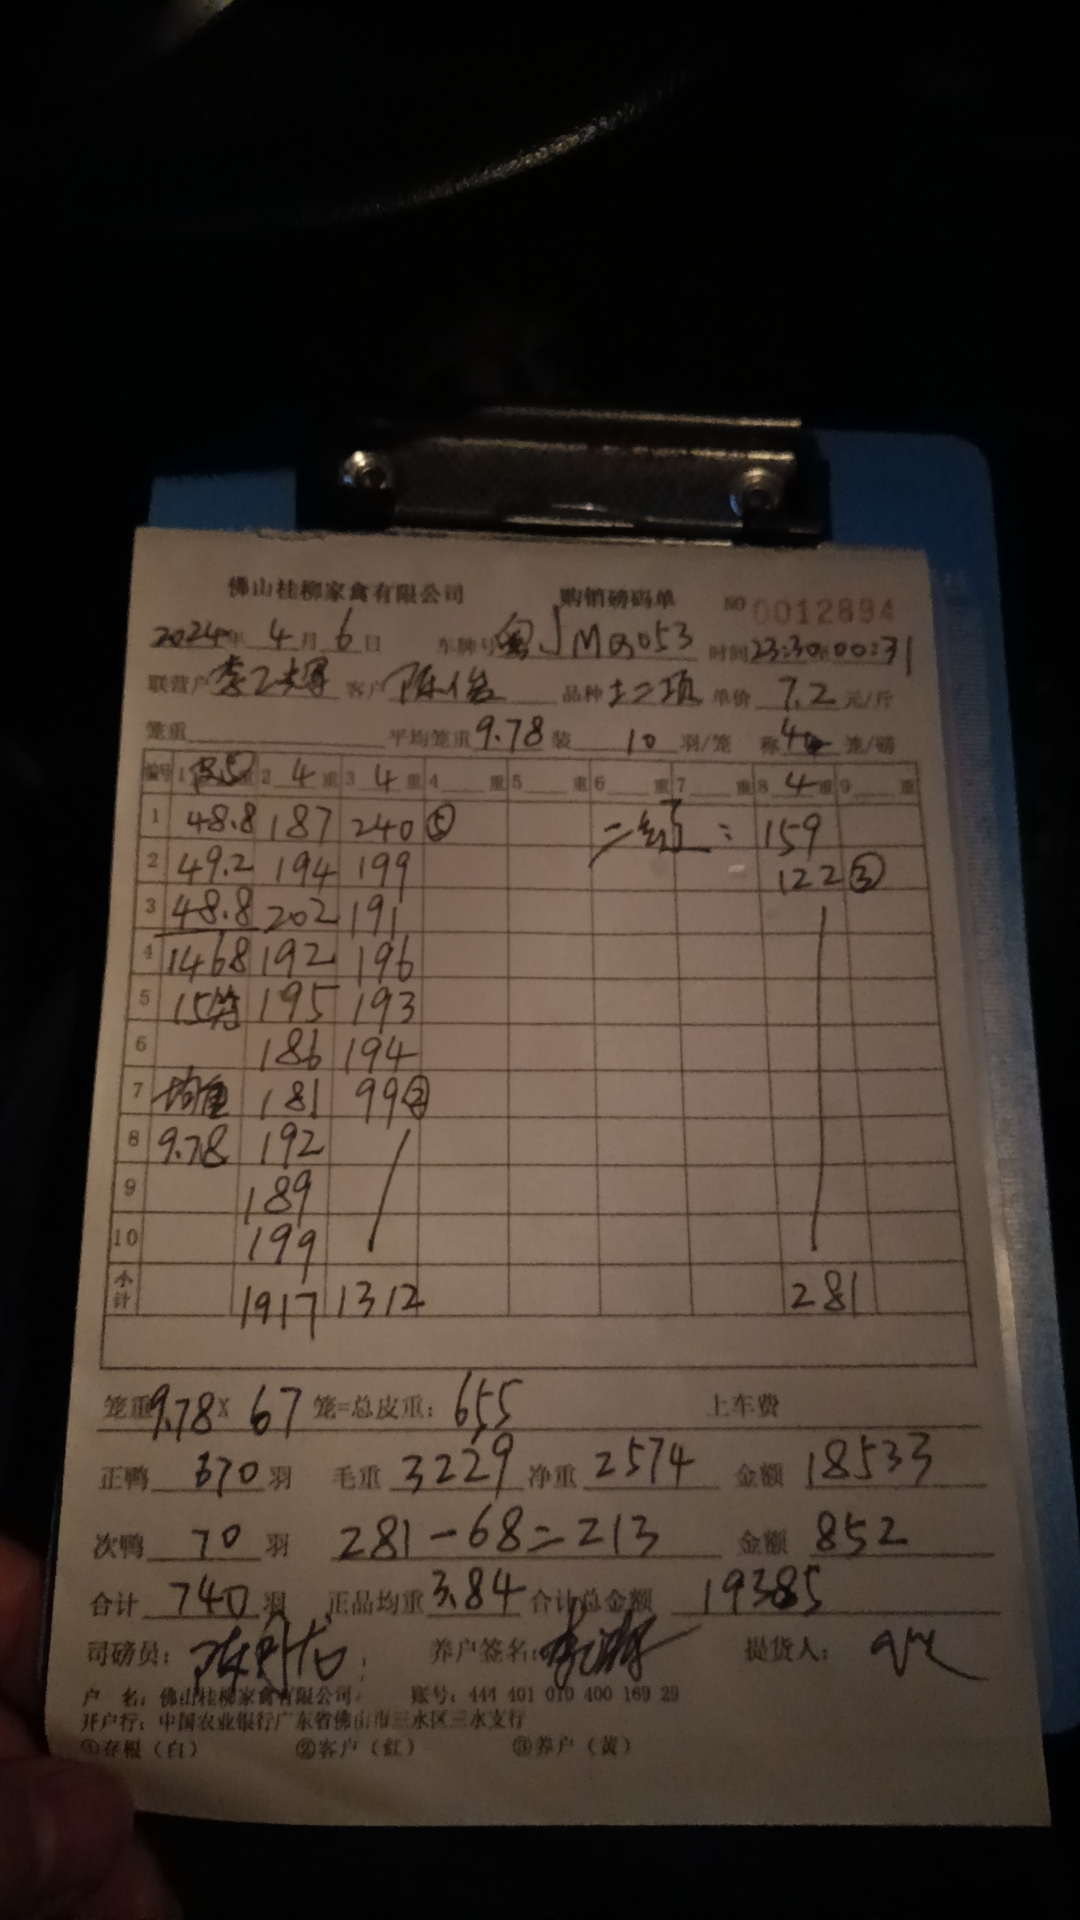 佛山桂柳家禽有限公司 购销磅码单 NO 0012894
2024年 4 月 6 日 车牌号 粤J 053 时间 23:30 00:31
联营户 李 客户 陈 品种 土二项 单价 7.2 元/斤
笼重 平均笼重 9.78 装 10 羽/笼 称 4 笼/磅
编号 1 重 2 4 重 3 4 重 4 重 5 重 6 重 7 重 8 4 重 9 重
1 48.8 187 240 ⑤ 二 : 159
2 49.2 194 199 122 ③
3 48.8 202 191
4 1468 192 196
5 15笼 195 193
6 186 194
7 均重 181 99 ②
8 9.78 192
9 189
10 199
小计 1917 1312 281
笼重 9.78 X 67 笼=总皮重: 655 上车费
正鸭 670 羽 毛重 3229 净重 2574 金额 18533
次鸭 70 羽 281-68=213 金额 852
合计 740 羽 正品均重 3.84 合计总金额 19385
司磅员: 养户签名: 提货人:
户 名: 佛山桂柳家禽有限公司 账号: 444 401 010 400 169 29
开户行: 中国农业银行广东省佛山市三水区三水支行
①存根(白) ②客户(红) ③养户(黄)